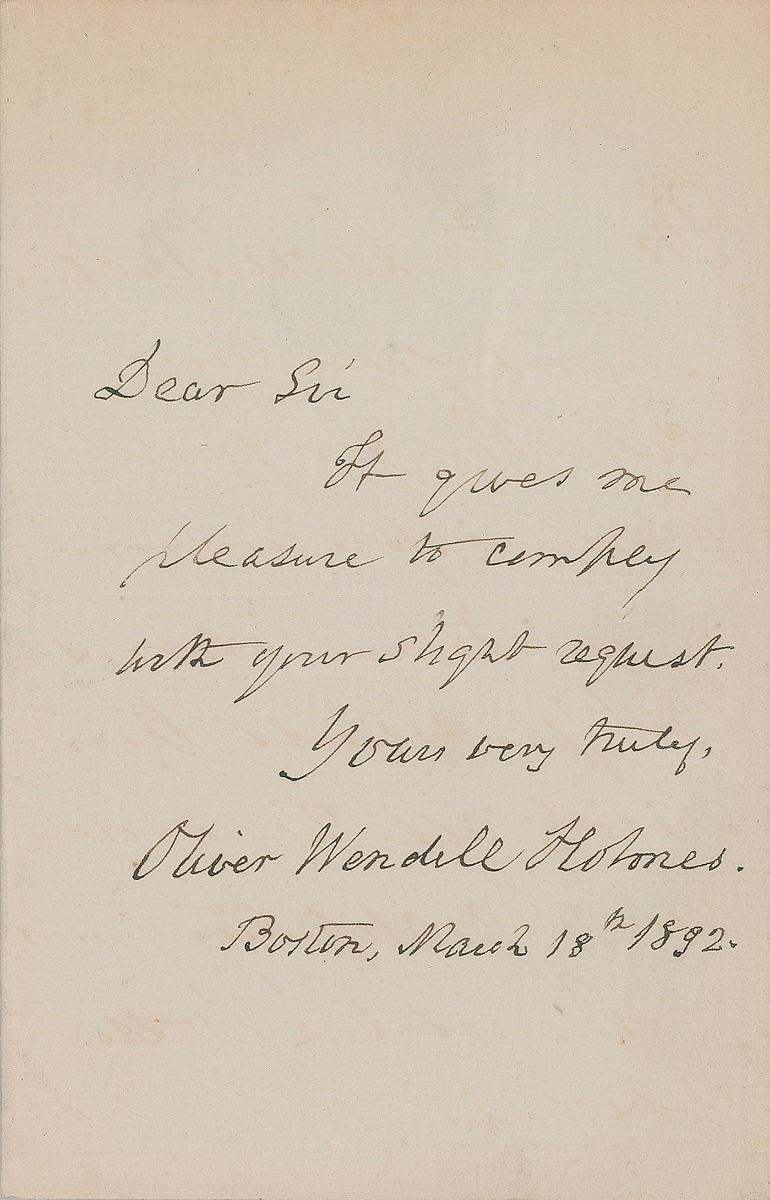 Dear Sir
It gives me
pleasure to comply
with your slight request.
Yours very truly,
Oliver Wendell Holmes.
Boston, March 18th 1892.